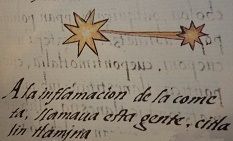 A la inflamacion de la come
ta, llamaua esta gente, citla
lin tlamina